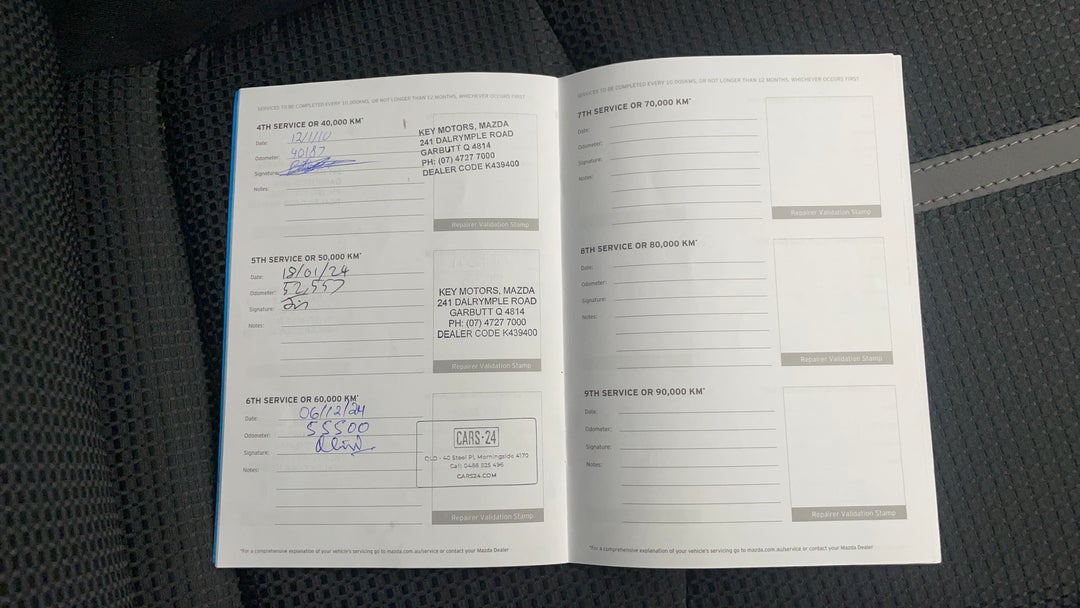 SERVICES TO BE COMPLETED EVERY 10,000KMS, OR NOT LONGER THAN 12 MONTHS, WHICHEVER OCCURS FIRST
4TH SERVICE OR 40,000 KM*
Date:
Odometer: 40187
Signature:
Notes:
KEY MOTORS, MAZDA
241 DALRYMPLE ROAD
GARBUTT Q 4814
PH: (07) 4727 7000
DEALER CODE K439400
Repairer Validation Stamp
5TH SERVICE OR 50,000 KM*
Date: 18/01/24
Odometer: 52,557
Signature:
Notes:
KEY MOTORS, MAZDA
241 DALRYMPLE ROAD
GARBUTT Q 4814
PH: (07) 4727 7000
DEALER CODE K439400
Repairer Validation Stamp
6TH SERVICE OR 60,000 KM*
Date: 06/12/24
Odometer: 55500
Signature:
Notes:
CARS-24
QLD - 40 Steel Pl, Morningside 4170
Call: 0488 825 496
CARS24.COM
Repairer Validation Stamp
*For a comprehensive explanation of your vehicle's servicing go to mazda.com.au/service or contact your Mazda Dealer
SERVICES TO BE COMPLETED EVERY 10,000KMS, OR NOT LONGER THAN 12 MONTHS, WHICHEVER OCCURS FIRST
7TH SERVICE OR 70,000 KM*
Date:
Odometer:
Signature:
Notes:
Repairer Validation Stamp
8TH SERVICE OR 80,000 KM*
Date:
Odometer:
Signature:
Notes:
Repairer Validation Stamp
9TH SERVICE OR 90,000 KM*
Date:
Odometer:
Signature:
Notes:
Repairer Validation Stamp
*For a comprehensive explanation of your vehicle's servicing go to mazda.com.au/service or contact your Mazda Dealer